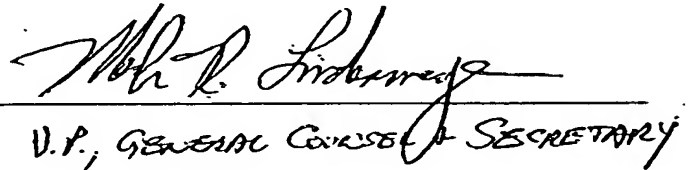 R.
V.P., GENERAL COUNSEL & SECRETARY